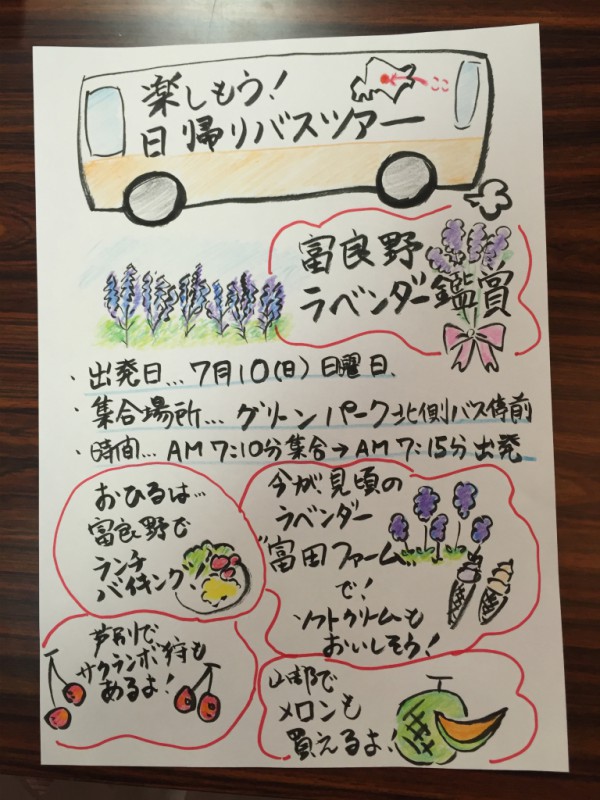 楽しもう!
ここ
日帰りバスツアー
富良野
ラベンダー鑑賞
・出発日...7月10(日)日曜日、
・集合場所...グリンパーク北側バス停前
・時間...AM7:10分集合→AM7:15分出発
おひるは...
富良野で
ランチ
バイキング
今が見頃の
ラベンダー
"富田ファーム"
で!
ソフトクリームも
おいしそう!
芦別で
サクランボ狩も
あるよ!
山部で
メロンも
買えるよ!